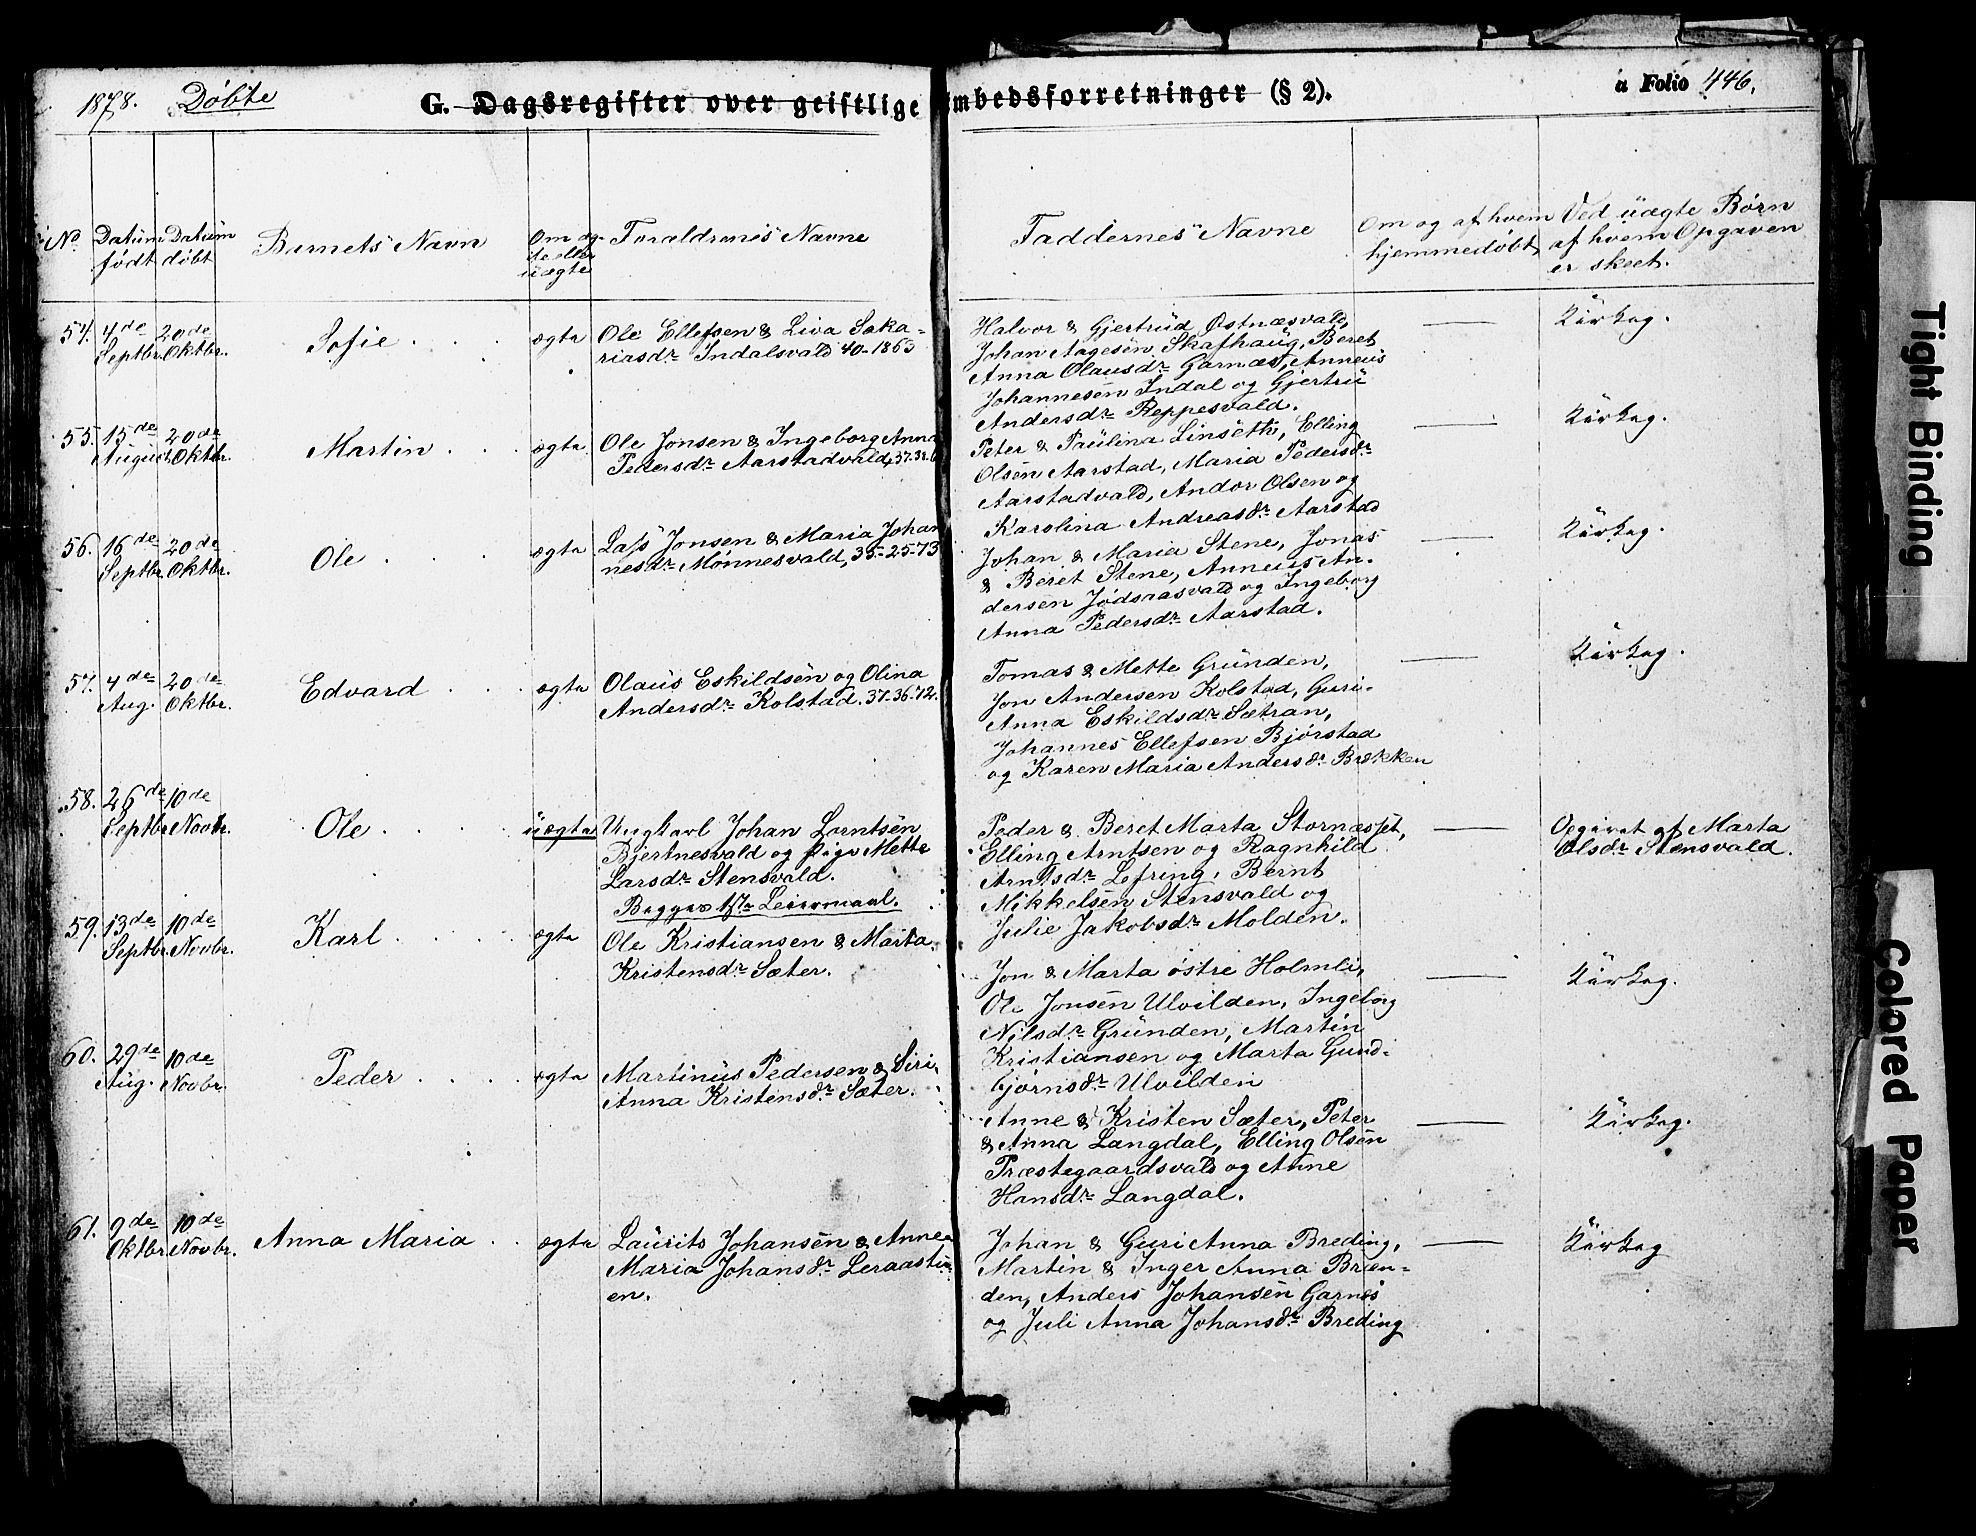 1878. Døbte
G. Dagsregister over geistlige Embedsforretninger (§ 2).
a Folio 446.
No.
Datum
født
Datum
døbt
Barnets Navn
Om æg-
te eller
uægte
Forældrenes Navne
Faddernes Navne
Om og af hvem
hjemmedøbt
Ved uægte Børn
af hvem Opgaven
er skeet.
54. 4de
Septbr.
20de
Oktbr.
Sofie
ægte
Ole Ellefsen & Liva Saka-
riasdr. Indalsvald 40-1863
Halvor & Gjertrud Østnæsvald,
Johan Aagesen Skafhaug, Beret
Anna Olausdr. Garnæs, Anneus
Johannesen Indal og Gjertru
Andersdr. Reppesvald.
Kirkeg.
55. 15de
August
20de
Oktbr.
Martin
ægte
Ole Jonsen & Ingeborg Anna
Pedersdr. Aarstadvald,
Peter & Paulina Linseth, Elling
Olsen Aarstad, Maria Pedersdr.
Aarstadvald, Andor Olsen og
Karolina Andreasdr. Aarstad
Kirkeg.
56. 16de
Septbr.
20de
Oktbr.
Ole
ægte
Lass Jonsen & Maria Johan
nesdr. Mønnesvald, 35-25-73
Johan & Maria Stene, Jonas
& Beret Stene, Anneus An-
dersen Jødsaasvald og Ingeborg
Anna Pedersdr. Aarstad.
Kirkeg.
57. 4de
Aug.
20de
Oktbr.
Edvard
ægte
Olaus Eskildsen og Olina
Andersdr. Kolstad. 37-36-72.
Tomas & Mette Grunden,
Jon Andersen Kolstad, Guri-
Anna Eskildsdr. Sætran,
Johannes Ellefsen Bjørstad
og Karen Maria Andersdr. Brækken
Kirkeg.
58. 26de
Septbr.
10de
Novbr.
Ole
uægte
Ungkarl Johan Lorntsen
Bjertnesvald og Pige Mette
Larsdr. Stensvald.
Begges 1ste Leiermaal.
Peder & Beret Marta Stornæsset,
Elling Arntsen og Ragnhild
Arntsdr. Lefring, Bernt
Mikkelsen Stensvald og
Julie Jakobsdr. Molden.
Opgivet af Marta
Olsdr. Stensvald.
59. 13de
Septbr.
10de
Novbr.
Karl
ægte
Ole Kristiansen & Marta
Kristensdr. Sæter.
Jon & Marta østre Holmli,
Ole Jonsen Ulvilden, Ingeborg
Nilsdr. Grunden, Martin
Kristiansen og Marta Gund-
bjørnsdr. Ulvilden
Kirkeg.
60. 29de
Aug.
10de
Novbr.
Peder
ægte
Martinus Pedersen & Siri-
Anna Kristensdr. Sæter.
Anne & Kristen Sæter, Peter
& Anna Langdal, Elling Olsen
Præstegaardsvald og Anne
Hansdr. Langdal.
Kirkeg.
61. 9de
Oktbr.
10de
Novbr.
Anna Maria
ægte
Laurits Johansen & Anne
Maria Johansdr. Leraasti-
en.
Johan & Guri Anna Breding,
Martin & Inger Anna Bræn-
den, Anders Johansen Garnes
og Juli Anna Johansdr. Breding
Kirkeg
Tight Binding
Colored Paper